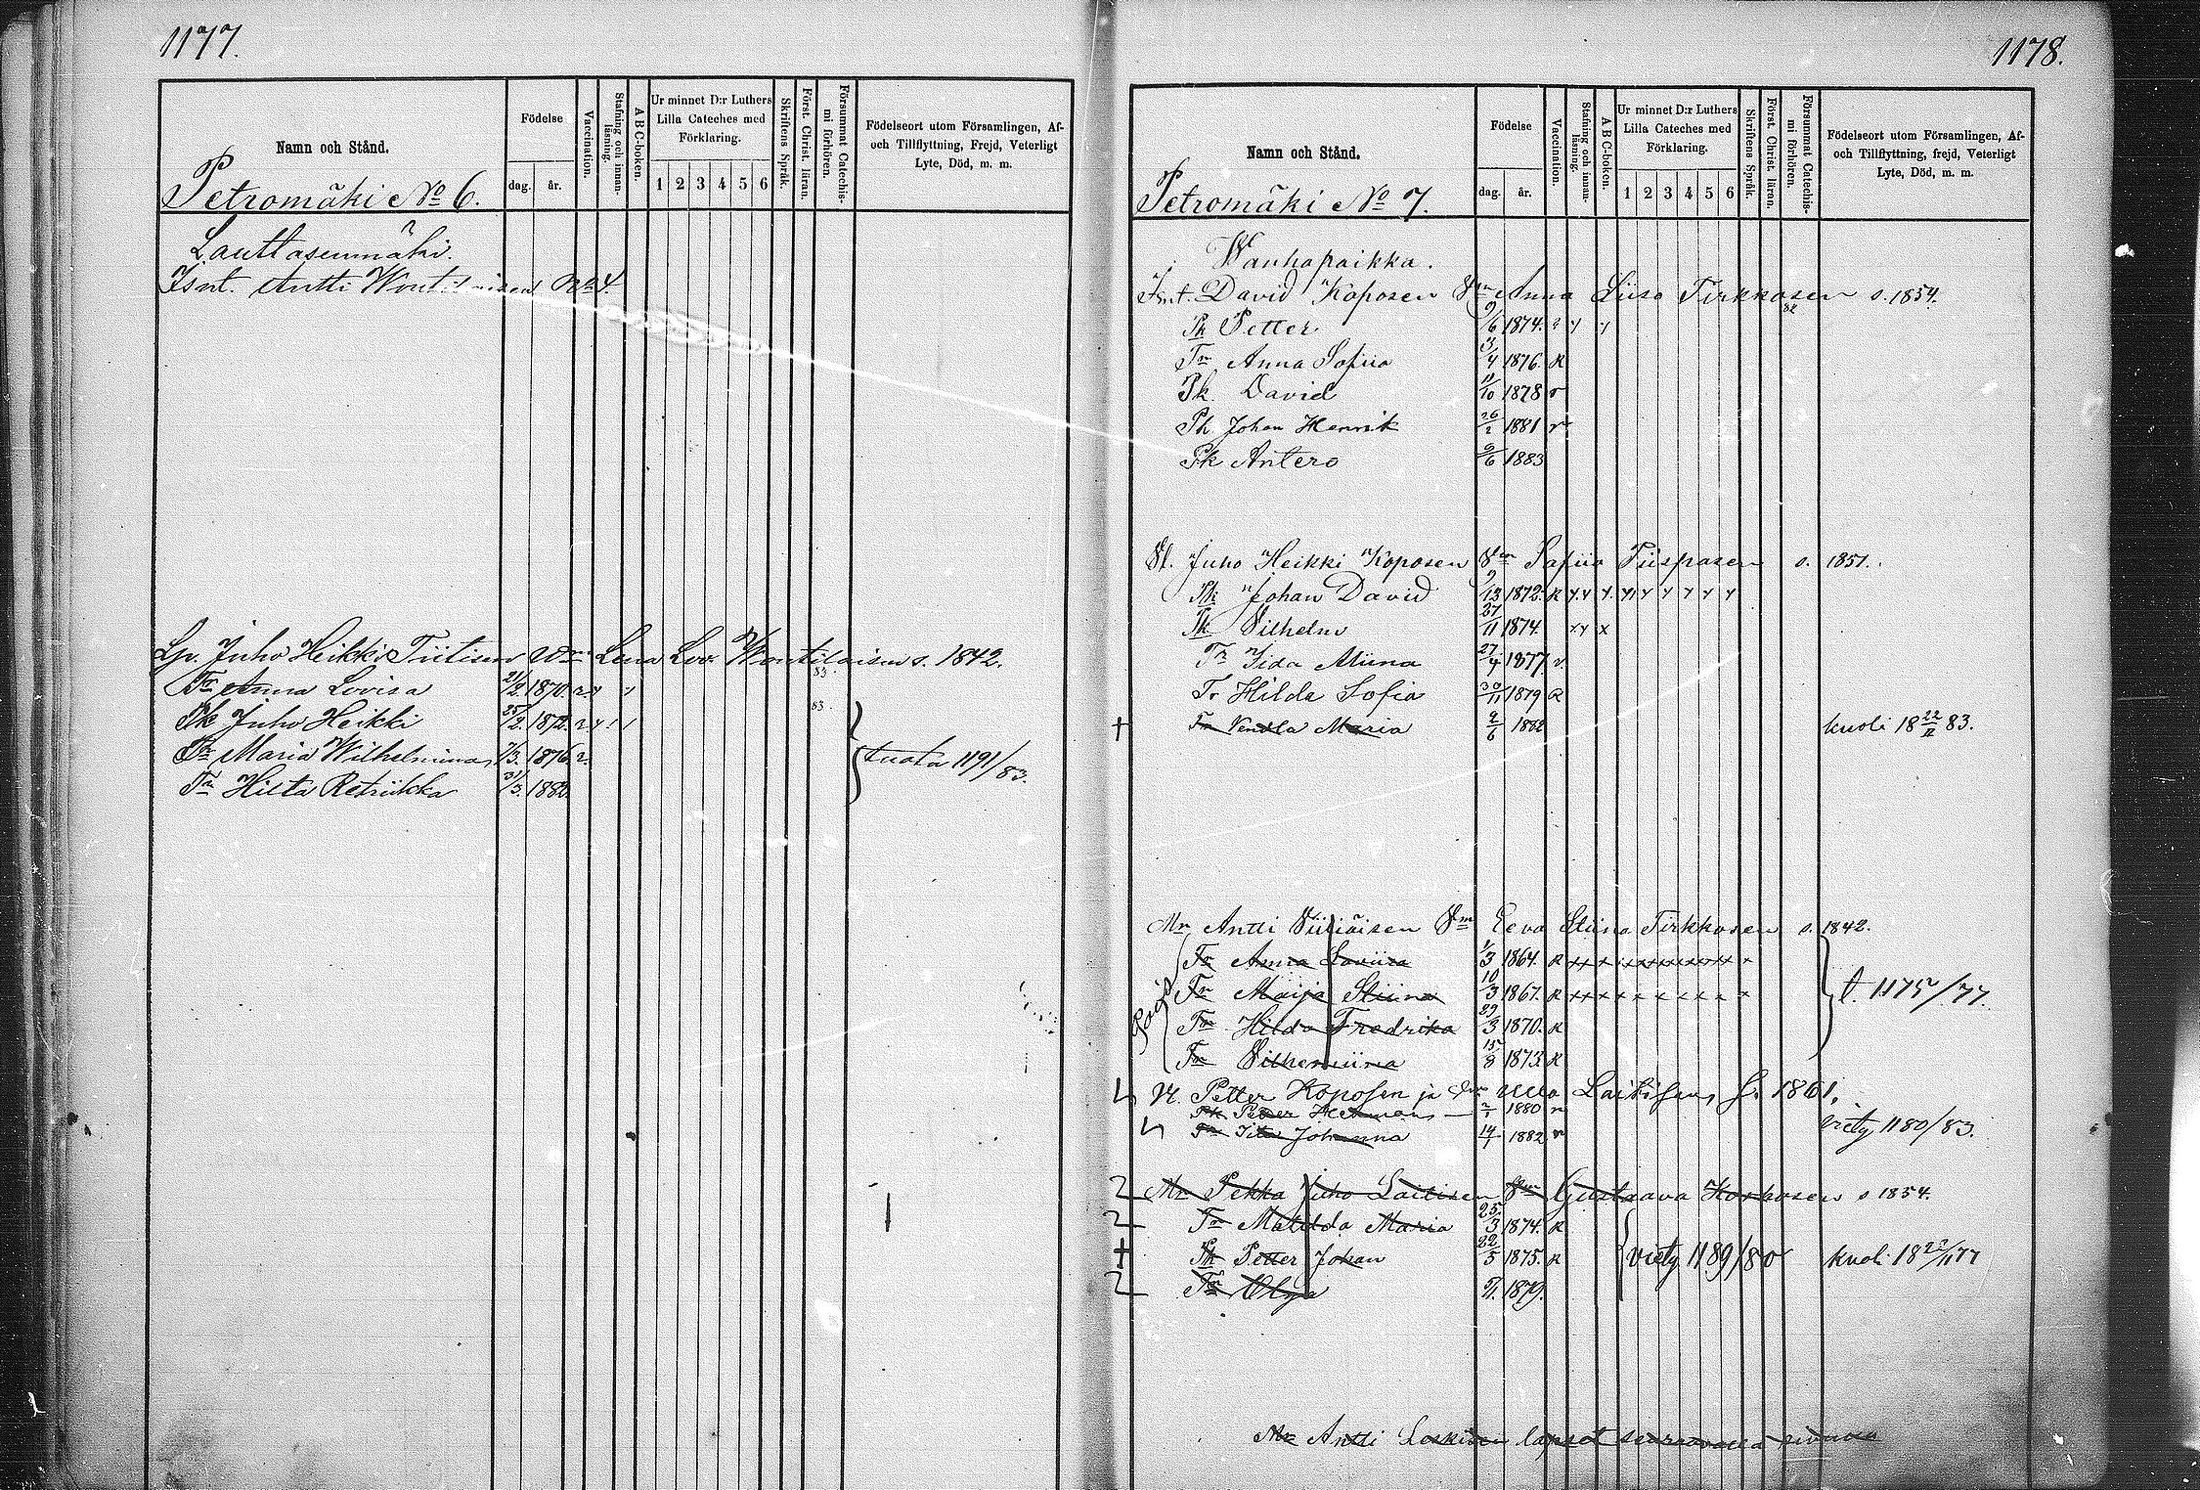 1177.
Namn och Stånd.
Födelse
dag. år.
Vaccination.
Stafning och innanläsning.
A B C-boken.
Ur minnet D:r Luthers
Lilla Cateches med
Förklaring.
1 2 3 4 5 6
Skriftens Språk.
Först. Christ. läran.
Försummat Catechismi förhören.
Födelseort utom Församlingen, Af-
och Tillflyttning, Frejd, Veterligt
Lyte, Död, m. m.
Petromäki No 6.
Lauttasenmäki.
Isnt. Antti No 4.
Juho Heikki Tiitisen Lena s. 1842.
83.
Tr Anna Lovisa 1870.
Pk Juho Heikki 25/2. 1872. 83.
Tr Maria Wilhelmina 7/3. 1876
tuolta 1191/83.
Tr Hilta 31/3. 188
1178.
Namn och Stånd.
Födelse
dag. år.
Vaccination.
Stafning och innanläsning.
A B C-boken.
Ur minnet D:r Luthers
Lilla Cateches med
Förklaring.
1 2 3 4 5 6
Skriftens Språk.
Först. Christ. läran.
Försummat Catechismi förhören.
Födelseort utom Församlingen, Af-
och Tillflyttning, frejd, Veterligt
Lyte, Död, m. m.
Petromäki No 7.
Wanhapaikka.
Isnt. David Koposen Vm Anna Liisa Tirkkosen s. 1854.
Pk Petter 9/6 1874.
Tr Anna Sofiia 3/4 1876. R
Pk. David 11/10 1878 r
Pk. Johan Henrik 1881 r
Pk Antero 9/6 1883
Vl. Juho Heikki Koposen Vm Sofiia Piispasen s. 1851.
Pk Johan David 9/12 1872. R
Pk Vilhelm 27/11 1874. x x x
Tr Iida Miina 27/4 1877.
Tr Hilda Sofia 30/11 1879 R
† Tr Vendla Maria 9/6 1882 kuoli 18 22/II 83.
Mr Antti Vm Eeva Stiina Tirkkosen s. 1842.
Tr Anna Loviisa 1/3 1864. R
Tr Maija Stiina 10/3 1867. R
t. 1175/77.
Tr Hilda Fredrika 29/3 1870. R
Tr Vilhemiina 15/8 1873. R
Vl. Petter Koposen ja Vm Ulla Laitisen s. 1861.
Pk Petter Herman 1880
Tr Iita Johanna 14/1 1882 r
viety 1180/83.
Mr Pekka Juho Laitisen Vm Gustaava Korhosen s 1854.
Tr Matilda Maria 25/3 1874. R
† Pk Petter Johan 22/5 1875. R viety 1189/80 kuoli 77
Tr Olga 1879.
Mr Antti lapset